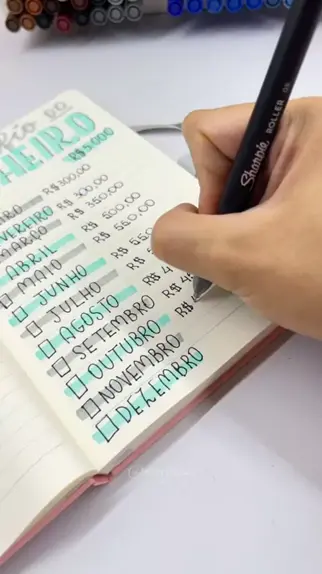 fio DO
HEIRO
R$5.000
IRO R$300,00
VEREIRO R$ 300,00
MARÇO R$ 350,00
ABRIL R$ 500,00
MAIO R$ 550,00
JUNHO R$
JULHO R$
AGOSTO R$ 4
SETEMBRO R$
OUTUBRO R$
NOVEMBRO
DEZEMBRO
Sharpie ROLLER